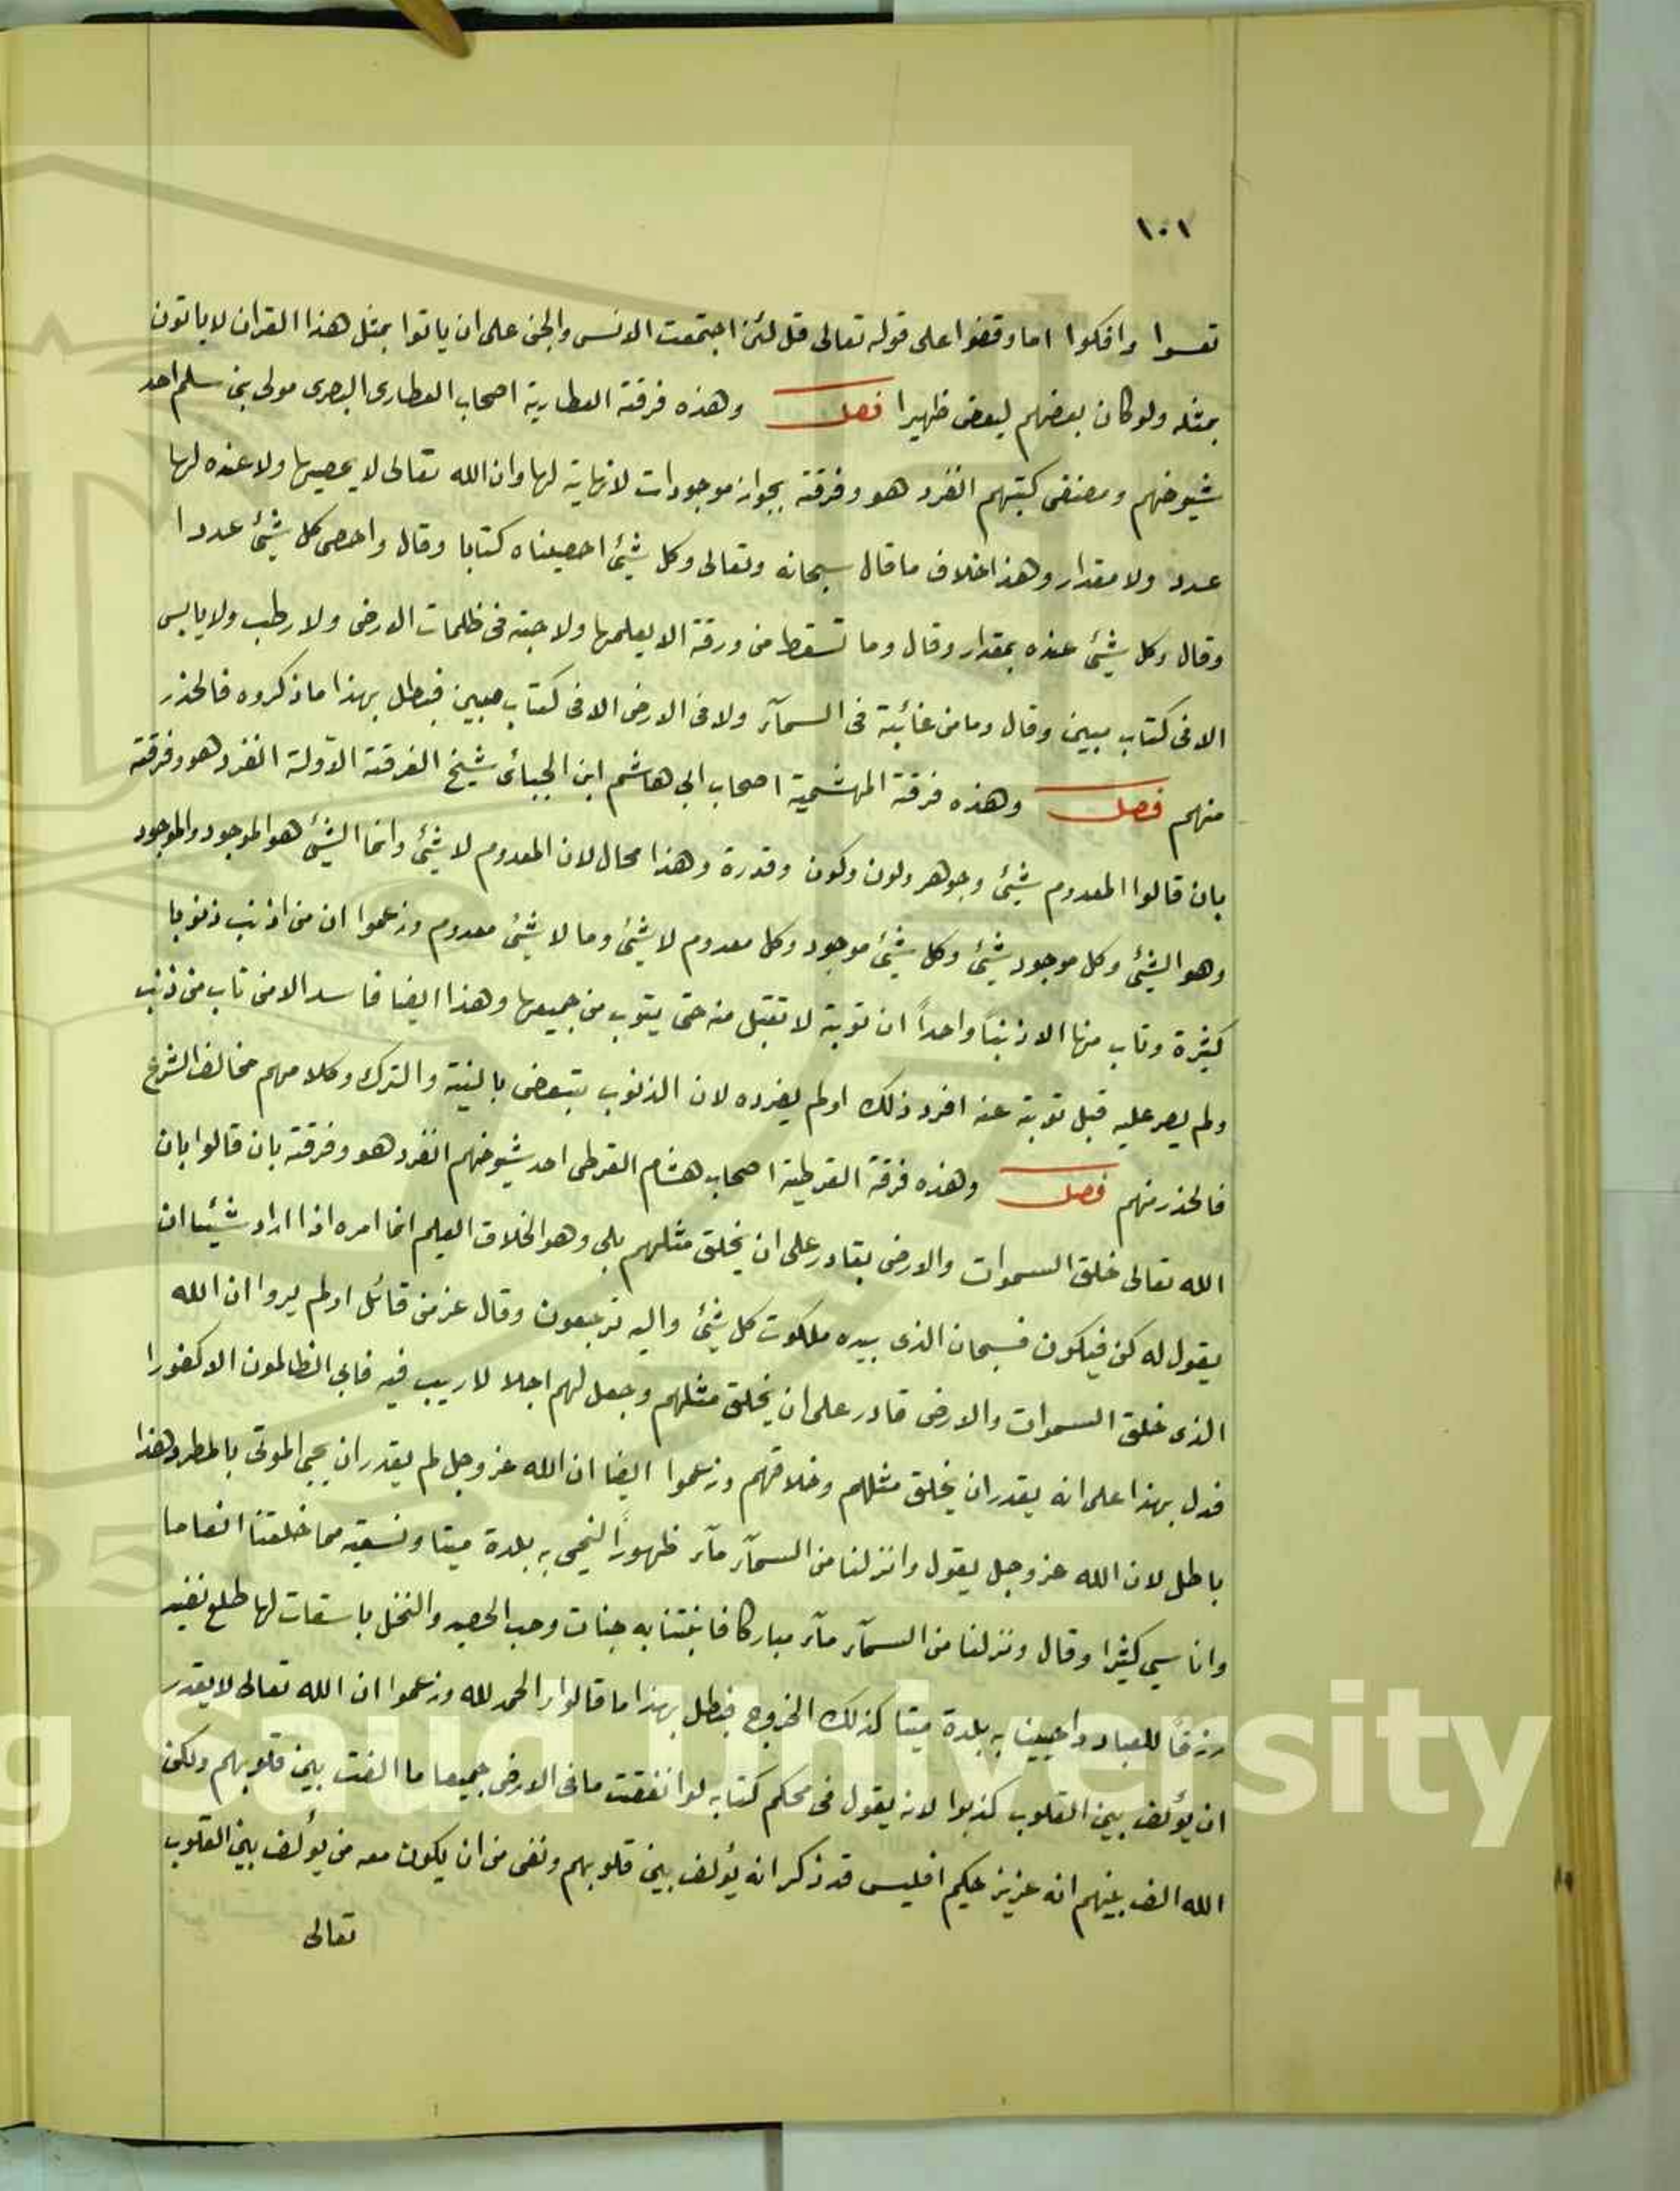 ١٠١
تعسوا وافكوا اما وقفوا على قوله تعالى قل لئن اجتمعت الانس والجن على ان ياتوا بمثل هذا القران لا ياتون
بمثله ولو كان بعضهم لبعض ظهيرا فصل وهذه فرقة العطارية اصحاب العطارى البصرى مولى بنى سلم احد
شيوخهم ومصنفى كتبهم انفرد هو وفرقته بجواز موجودات لا نهاية لها وان الله تعالى لا يحصيها ولا عنده لها
عدد ولا مقدار وهذا خلاف ما قال سبحانه وتعالى وكل شيئ احصيناه كتابا وقال واحصى كل شيئ عددا
وقال وكل شيئ عنده بمقدار وقال وما تسقط من ورقة الا يعلمها ولا حبة فى ظلمات الارض ولا رطب ولا يابس
الا فى كتاب مبين وقال وما من غائبة فى السمآء ولا فى الارض الا فى كتاب مبين فبطل بهذا ما ذكروه فالحذر
منهم فصل وهذه فرقة البهشمية اصحاب ابى هاشم ابن الجبائى شيخ الفرقة الاولة انفرد هو وفرقته
بان قالوا المعدوم شيئ وجوهر ولون وكون وقدرة وهذا محال لان المعدوم لا شيئ وانما الشيئ هو الموجود والموجود
وهو الشيئ وكل موجود شيئ وكل شيئ موجود وكل معدوم لا شيئ وما لا شيئ معدوم وزعموا ان من اذنب ذنوبا
كثيرة وتاب منها الا ذنباً واحداً ان توبته لا تقبل منه حتى يتوب من جميعها وهذا ايضا فاسد الا من تاب من ذنب
ولم يصر عليه قبل توبته عنه افرد ذلك اولم يفرده لان الذنوب بتبعض بالنية والترك وكلامهم مخالف الشرع
فالحذر منهم فصل وهذه فرقة القرطية اصحاب هشام القرطى احد شيوخهم انفرد هو وفرقته بان قالوا بان
الله تعالى خلق السموات والارض بقادر على ان يخلق مثلهم بلى وهو الخلاق العليم انما امره اذا اراد شيئا ان
يقول له كن فيكون فسبحان الذى بيده ملكوت كل شيئ واليه ترجعون وقال عز من قائل اولم يروا ان الله
الذى خلق السموات والارض قادر على ان يخلق مثلهم وجعل لهم اجلا لا ريب فيه فابى الظالمون الا كفورا
فدل بهذا على انه يقدر ان يخلق مثلهم وخلافهم وزعموا ايضا ان الله عز وجل لم يقدر ان يحيى الموتى بالمطر وهذا
باطل لان الله عز وجل يقول وانزلنا من السمآء مآء طهوراً لنحيى به بلدة ميتا ونسقيه مما خلقنا انعاما
واناسي كثيرا وقال ونزلنا من السمآء مآء مباركا فانبتنا به جنات وحب الحصيد والنخل باسقات لها طلع نضيد
رزقاً للعباد واحيينا به بلدة ميتا كذلك الخروج فبطل بهذا ما قالوا والحمد لله وزعموا ان الله تعالى لا يقدر
ان يؤلف بين القلوب كذبوا لانه يقول فى محكم كتابه لو انفقت ما فى الارض جميعا ما الفت بين قلوبهم ولكن
الله الف بينهم انه عزيز حكيم افليس قد ذكر انه يؤلف بين قلوبهم ونفى من ان يكون معه من يؤلف بين القلوب
تعالى
King Saud University